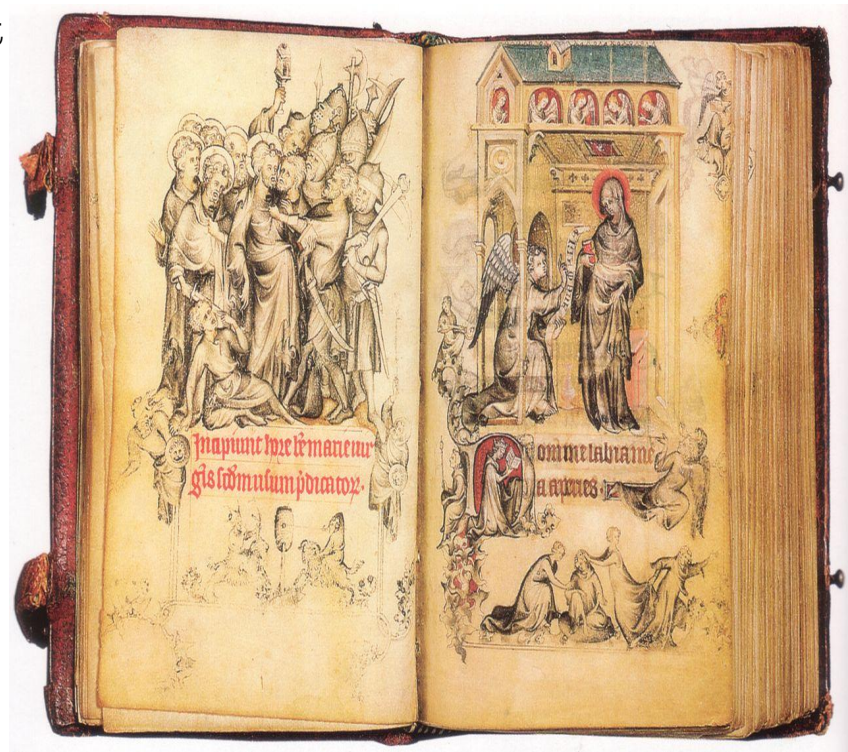 Incipiunt hore be marie uir
gĩs scðm usum p̃dicatoꝝ.
Domine labia me
a aperies. Et